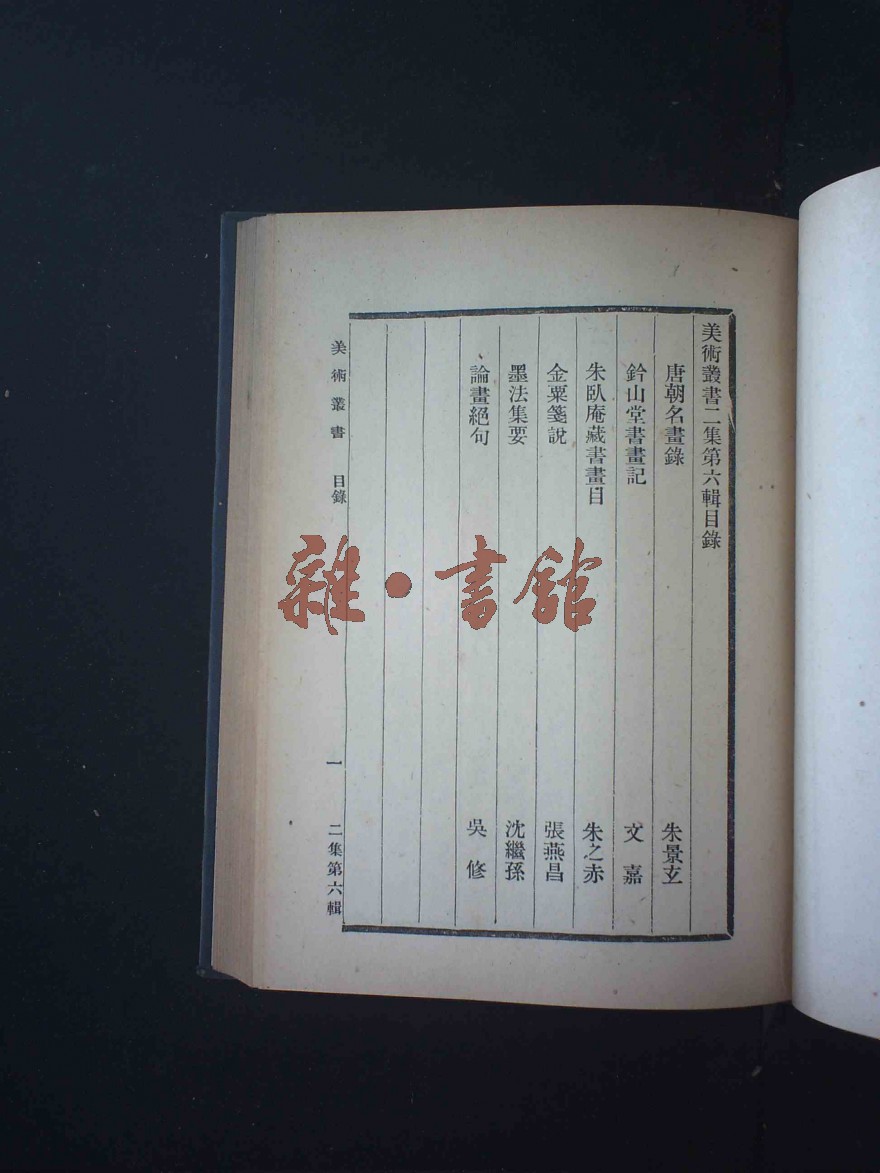 美術叢書二集第六輯目錄
唐朝名畫錄 朱景玄
鈐山堂書畫記 文嘉
朱臥庵藏書畫目 朱之赤
金粟箋說 張燕昌
墨法集要 沈繼孫
論畫絕句 吳修
美術叢書 目錄 一 二集第六輯
雜·書館